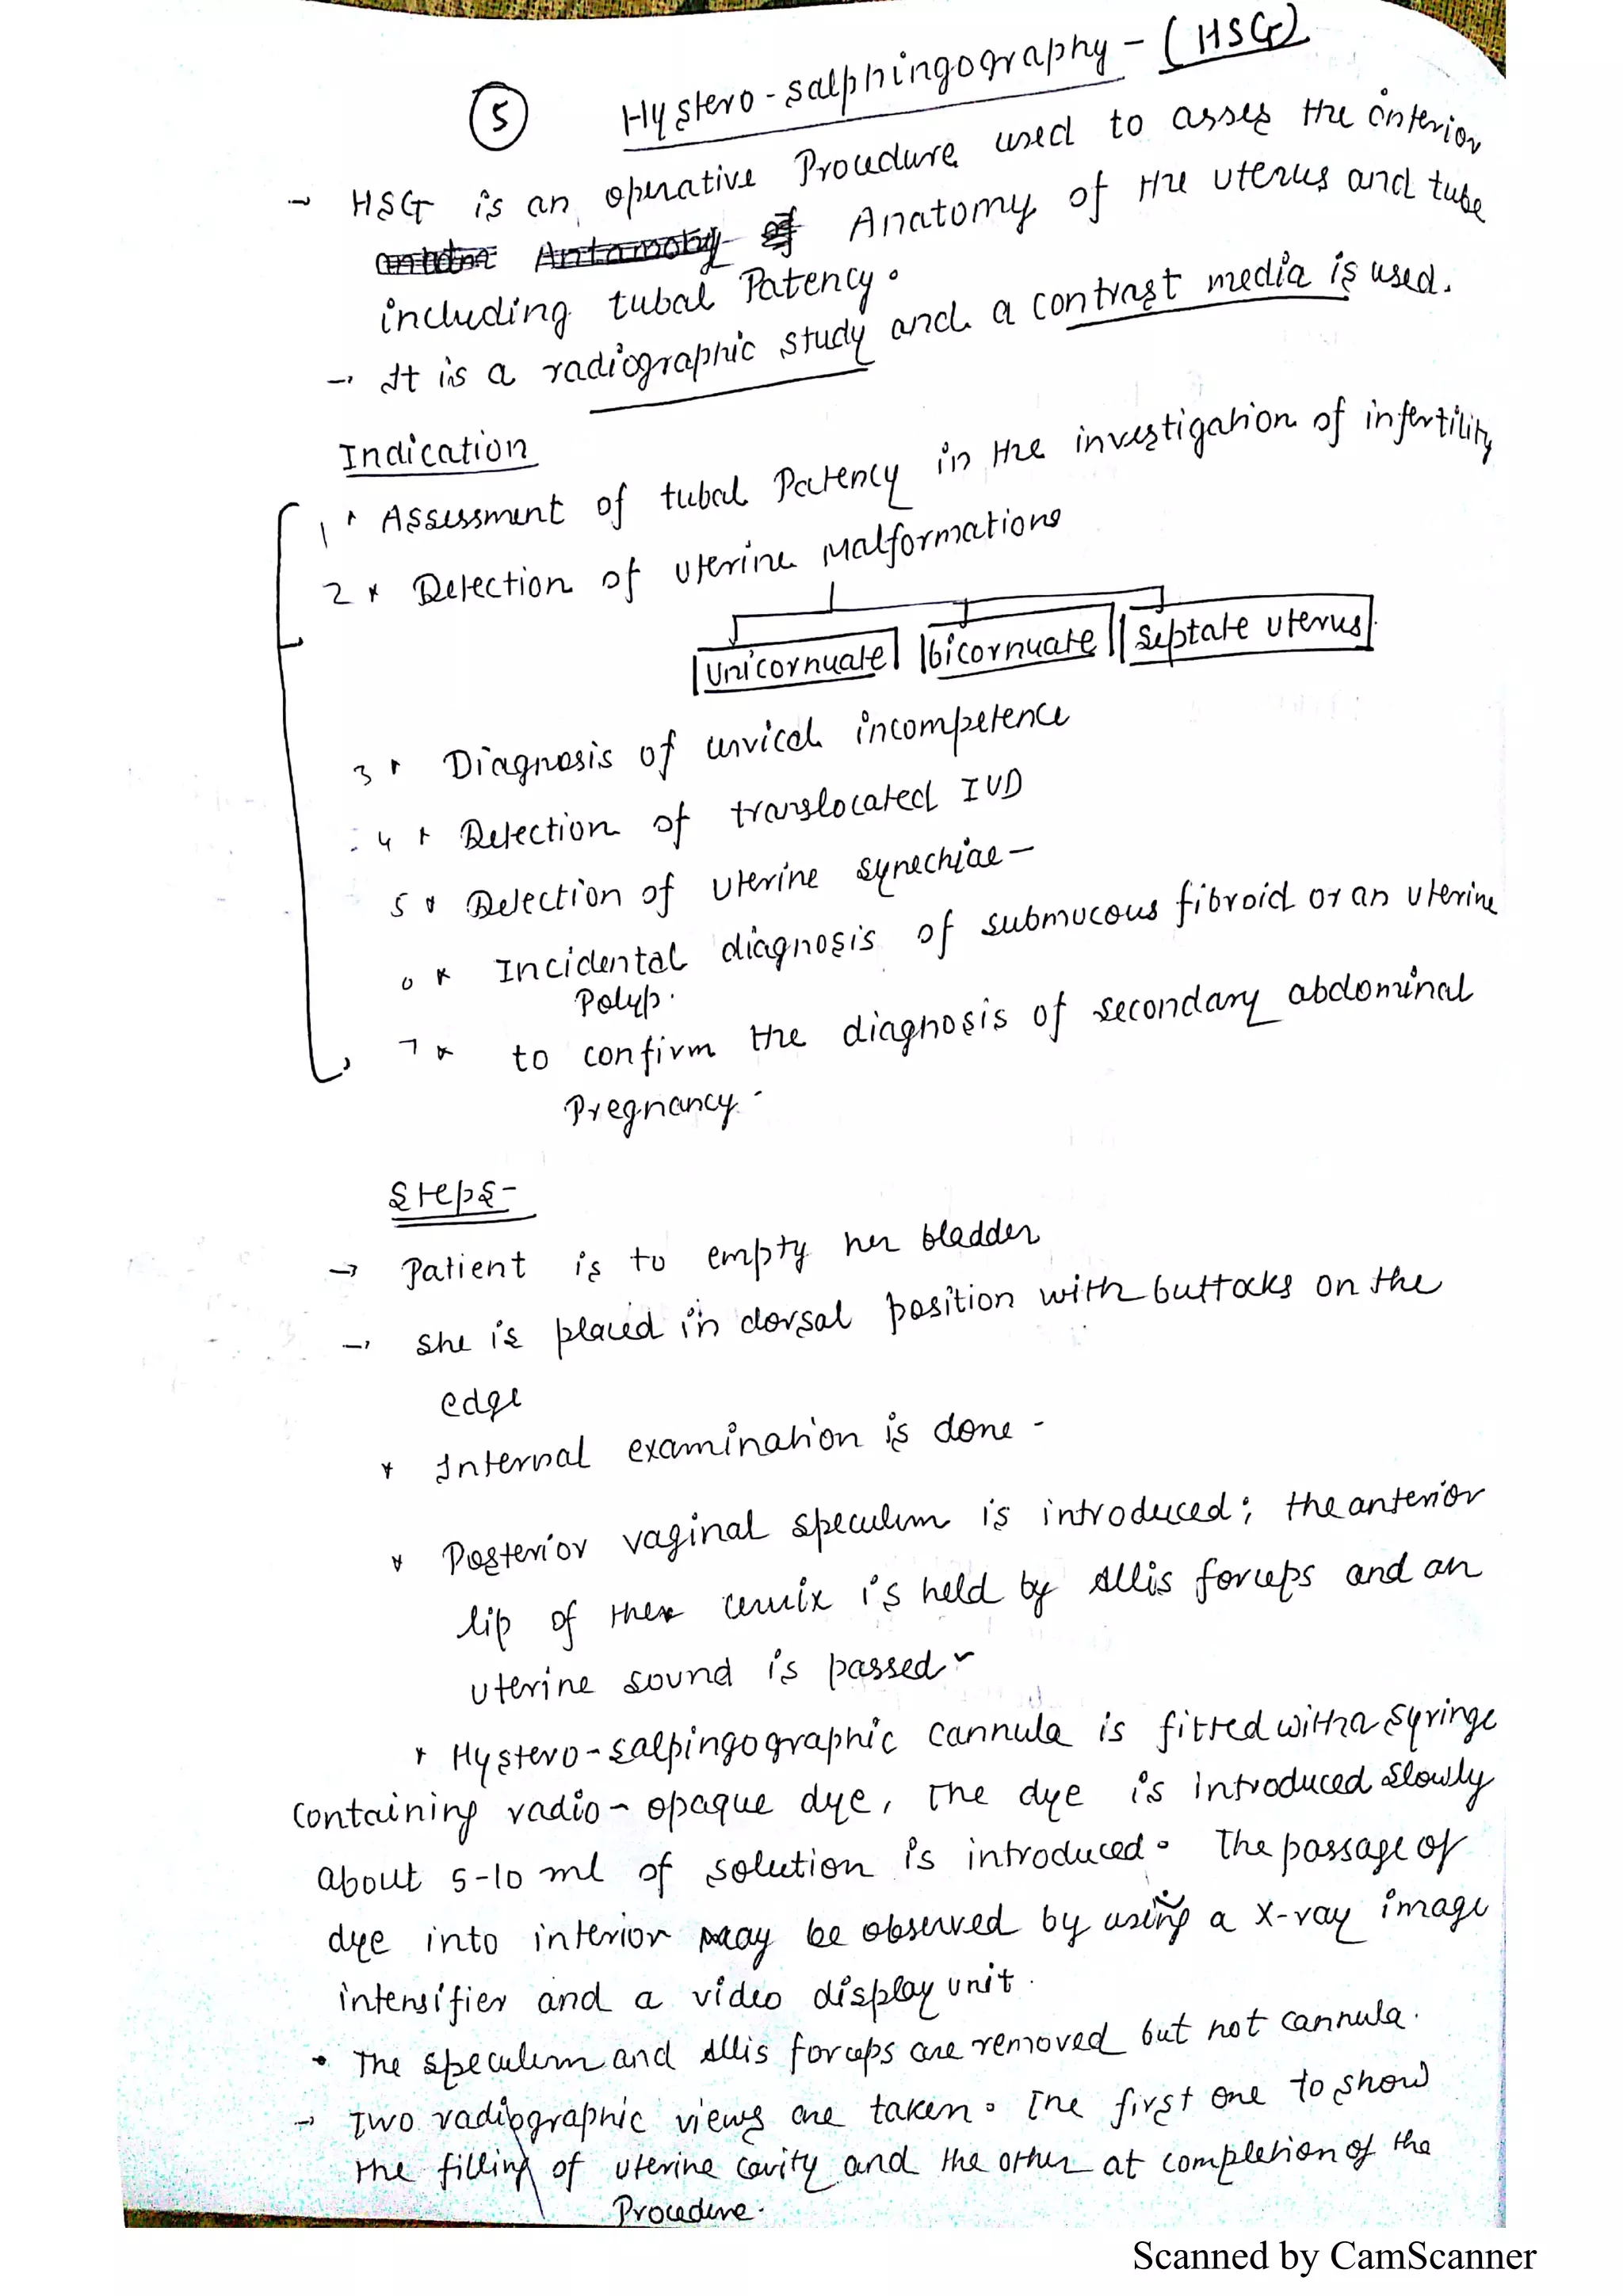 ⑤ Hystero-salphingography - (HSG)
→ HSG is an operative Procedure used to asses the interior
Anatomy of the uterus and tube
including tubal Patency.
→ It is a radiographic study and a contrast media is used.
Indication
1 * Assessment of tubal Patency in the investigation of infertility
2 * Detection of uterine Malformations
Unicornuate bicornuate Septate uterus
3 * Diagnosis of cervical incompetence
4 * Detection of translocated IUD
5 * Detection of uterine synechiae -
6 * Incidental diagnosis of submucous fibroid or an uterine
Polyp.
7 * to confirm the diagnosis of secondary abdominal
Pregnancy -
Steps -
→ Patient is to empty her bladder
→ She is placed in dorsal position with buttocks on the
edge
* Internal examination is done -
* Posterior vaginal speculum is introduced; the anterior
lip of the cervix is held by Allis forceps and an
uterine sound is passed
* Hystero-salpingographic cannula is fitted with a syringe
containing radio-opaque dye, The dye is introduced slowly
about 5-10 ml of solution is introduced. The passage of
dye into interior may be observed by using a X-ray image
intensifier and a video display unit.
• The speculum and Allis forceps are removed but not cannula.
→ Two radiographic views are taken. The first one to show
the filling of uterine cavity and the other at completion of the
Procedure.
Scanned by CamScanner